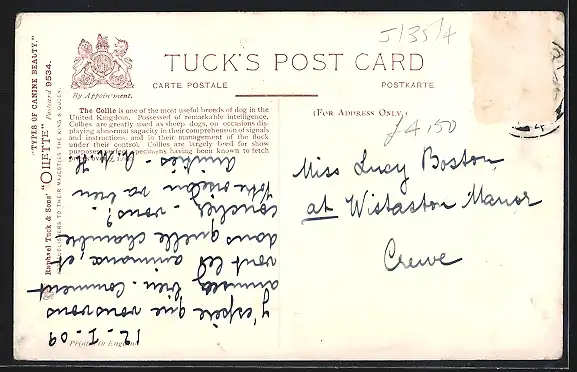 J/35/4
TUCK'S POST CARD
By Appointment.
CARTE POSTALE
POSTKARTE
(FOR ADDRESS ONLY.)
£4.50
"TYPES OF CANINE BEAUTY."
Raphael Tuck & Sons' "OILETTE" Postcard 9534.
TO THEIR MAJESTIES THE KING & QUEEN.
The Collie is one of the most useful breeds of dog in the
United Kingdom. Possessed of remarkable intelligence,
Collies are greatly used as sheep dogs, on occasions dis-
playing abnormal sagacity in their comprehension of signals
and instructions, and in their management of the flock
under their control. Collies are largely bred for show
purposes, specimens having been known to fetch
Miss Lucy Boston
at Wistaston Manor
Crewe
12 - I - 09
J'espère que vous vous
amusez bien. Comment
vont les animaux, et
dans quelle chambre
couchez-vous?
va bien
Amitiés -
Printed in England